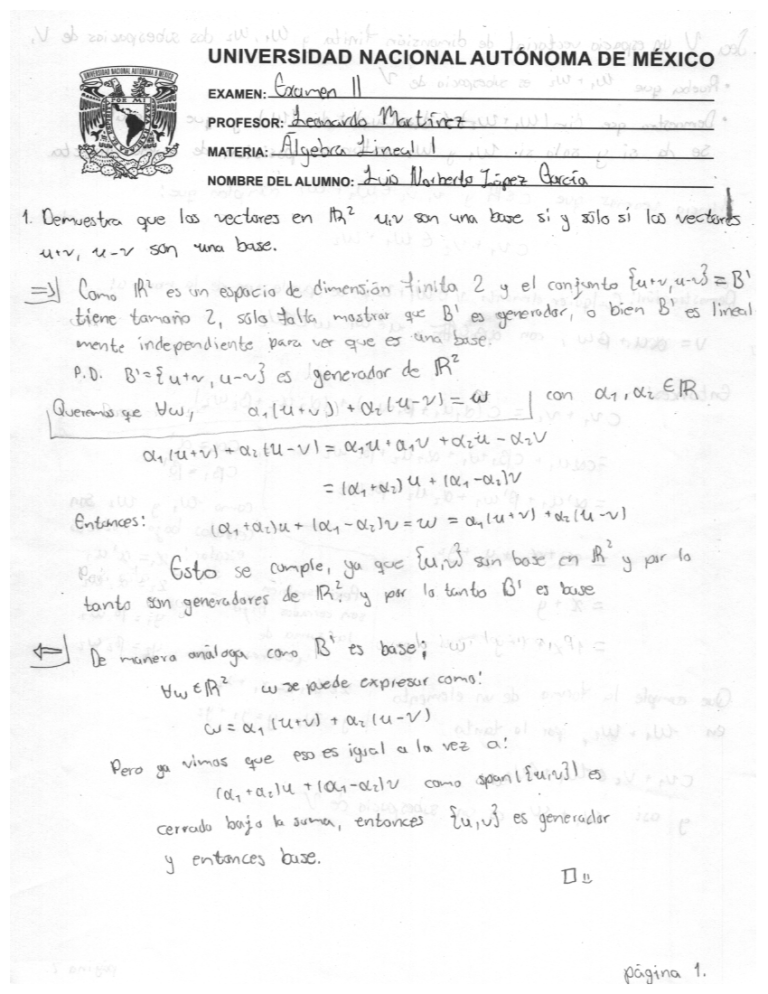 UNIVERSIDAD NACIONAL AUTÓNOMA DE MÉXICO
EXAMEN: Examen II
PROFESOR: Leonardo Martínez
MATERIA: Álgebra Lineal I
NOMBRE DEL ALUMNO: Luis Norberto López García
1. Demuestra que los vectores en ℝ² u,v son una base si y sólo si los vectores
u+v, u-v son una base.
⇒] Como ℝ² es un espacio de dimensión finita 2 y el conjunto {u+v, u-v} = B'
tiene tamaño 2, sólo falta mostrar que B' es generador, o bien B' es lineal
mente independiente para ver que es una base.
P.D. B'={u+v, u-v} es generador de ℝ²
Queremos qe ∀w, α₁(u+v) + α₂(u-v) = w con α₁, α₂ ∈ ℝ
α₁(u+v) + α₂(u-v) = α₁u + α₁v + α₂u - α₂v
= (α₁+α₂)u + (α₁-α₂)v
Entonces: (α₁+α₂)u + (α₁-α₂)v = w = α₁(u+v) + α₂(u-v)
Esto se cumple, ya que {u,v} son base en ℝ² y por lo
tanto son generadores de ℝ². y por lo tanto B' es base
⇐] De manera análoga como B' es base;
∀w ∈ ℝ² w se puede expresar como:
w = α₁(u+v) + α₂(u-v)
Pero ya vimos que eso es igual a la vez a:
(α₁+α₂)u + (α₁-α₂)v como span({u,v}) es
cerrado bajo la suma, entonces {u,v} es generador
y entonces base.
□
página 1.